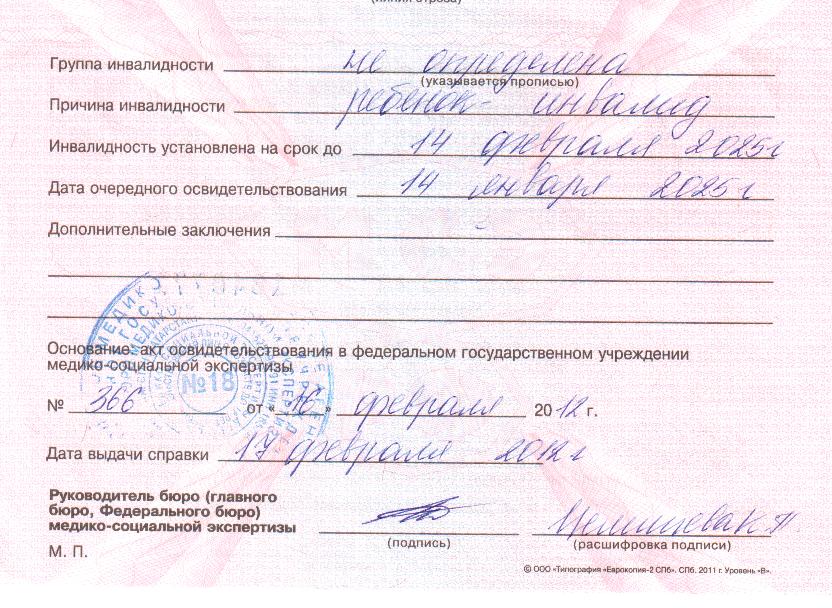 (линия отреза)
Группа инвалидности не определена
(указывается прописью)
Причина инвалидности ребенок-инвалид
Инвалидность установлена на срок до 14 февраля 2025 г
Дата очередного освидетельствования 14 января 2025 г
Дополнительные заключения -
Основание: акт освидетельствования в федеральном государственном учреждении
медико-социальной экспертизы
№18
№ 366 от «16» февраля 2012 г.
Дата выдачи справки 17 февраля 2012 г
Руководитель бюро (главного
бюро, Федерального бюро)
медико-социальной экспертизы
(подпись) (расшифровка подписи)
М. П.
© ООО «Типография «Еврокопия-2 СПб». СПб. 2011 г. Уровень «В».